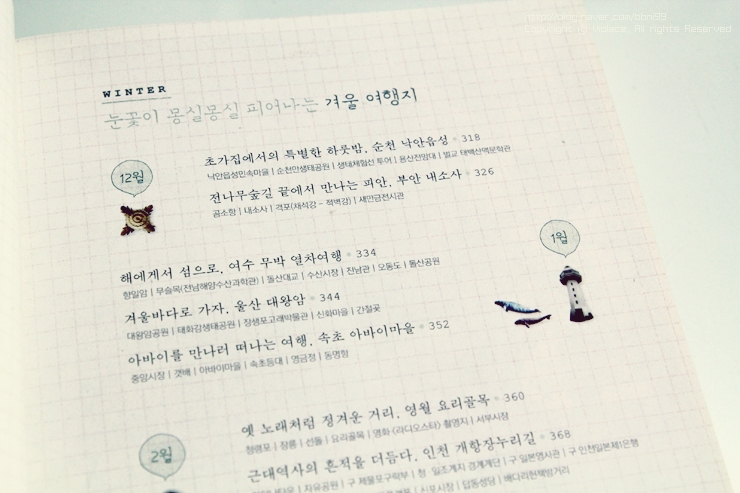 WINTER
눈꽃이 몽실몽실 피어나는 겨울 여행지
12월
초가집에서의 특별한 하룻밤, 순천 낙안읍성 318
낙안읍성민속마을 | 순천만생태공원 | 생태체험선 투어 | 용산전망대 | 벌교 태백산맥문학관
전나무숲길 끝에서 만나는 피안, 부안 내소사 326
곰소항 | 내소사 | 격포(채석강 - 적벽강) | 새만금전시관
1월
해에게서 섬으로, 여수 무박 열차여행 334
향일암 | 무슬목(전남해양수산과학관) | 돌산대교 | 수산시장 | 진남관 | 오동도 | 돌산공원
겨울바다로 가자, 울산 대왕암 344
대왕암공원 | 태화강생태공원 | 장생포고래박물관 | 신화마을 | 간절곶
아바이를 만나러 떠나는 여행, 속초 아바이마을 352
중앙시장 | 갯배 | 아바이마을 | 속초등대 | 영금정 | 동명항
2월
옛 노래처럼 정겨운 거리, 영월 요리골목 360
청령포 | 장릉 | 선돌 | 요리골목 | 영화 <라디오스타> 촬영지 | 서부시장
근대역사의 흔적을 더듬다, 인천 개항장누리길 368
자유공원 | 구 제물포구락부 | 청 일조계지 경계계단 | 구 일본영사관 | 구 인천일본제1은행
신포시장 | 답동성당 | 배다리헌책방거리